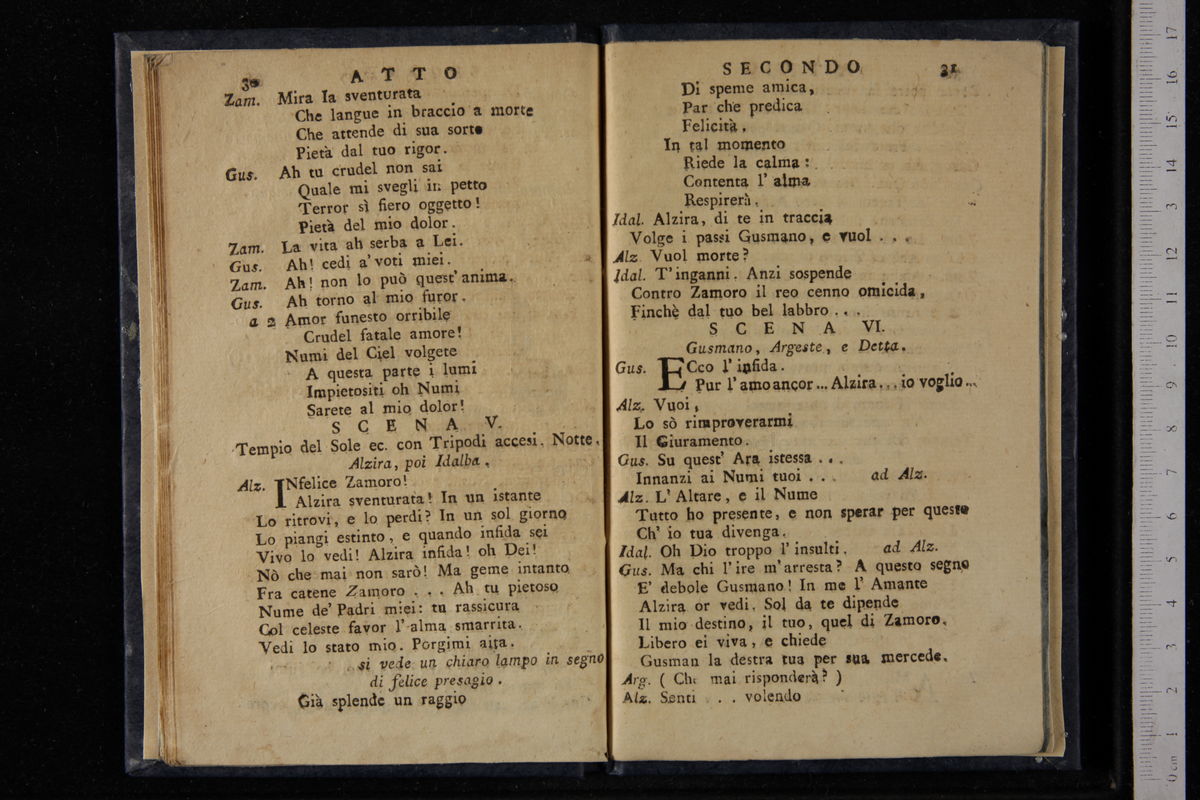 30 ATTO
Zam. Mira la sventurata
Che langue in braccio a morte
Che attende di sua sorte
Pietà dal tuo rigor.
Gus. Ah tu crudel non sai
Quale mi svegli in petto
Terror sì fiero oggetto!
Pietà del mio dolor.
Zam. La vita ah serba a Lei.
Gus. Ah! cedi a' voti miei.
Zam. Ah! non lo può quest' anima.
Gus. Ah torno al mio furor.
a 2 Amor funesto orribile
Crudel fatale amore!
Numi del Ciel volgete
A questa parte i lumi
Impietositi oh Numi
Sarete al mio dolor!
SCENA V.
Tempio del Sole ec. con Tripodi accesi. Notte.
Alzira, poi Idalba.
Alz. INfelice Zamoro!
Alzira sventurata! In un istante
Lo ritrovi, e lo perdi? In un sol giorno
Lo piangi estinto, e quando infida sei
Vivo lo vedi! Alzira infida! oh Dei!
Nò che mai non sarò! Ma geme intanto
Fra catene Zamoro . . . Ah tu pietoso
Nume de' Padri miei: tu rassicura
Col celeste favor l' alma smarrita.
Vedi lo stato mio. Porgimi aita.
si vede un chiaro lampo in segno
di felice presagio.
Già splende un raggio
SECONDO 31
Di speme amica,
Par che predica
Felicità.
In tal momento
Riede la calma:
Contenta l' alma
Respirerà.
Idal. Alzira, di te in traccia
Volge i passi Gusmano, e vuol . . .
Alz. Vuol morte?
Idal. T'inganni. Anzi sospende
Contro Zamoro il reo cenno omicida,
Finchè dal tuo bel labbro . . .
SCENA VI.
Gusmano, Argeste, e Detta.
Gus. ECco l' infida.
Pur l' amo ancor... Alzira... io voglio...
Alz. Vuoi,
Lo sò rimproverarmi
Il Giuramento.
Gus. Su quest' Ara istessa . . .
Innanzi ai Numi tuoi . . . ad Alz.
Alz. L' Altare, e il Nume
Tutto ho presente, e non sperar per questo
Ch' io tua divenga.
Idal. Oh Dio troppo l' insulti. ad Alz.
Gus. Ma chi l' ire m' arresta? A questo segno
E' debole Gusmano! In me l' Amante
Alzira or vedi. Sol da te dipende
Il mio destino, il tuo, quel di Zamoro.
Libero ei viva, e chiede
Gusman la destra tua per sua mercede.
Arg. ( Che mai risponderà? )
Alz. Senti . . . volendo
17
16
15
14
13
12
11
10
9
8
7
6
5
4
3
2
1
0 cm